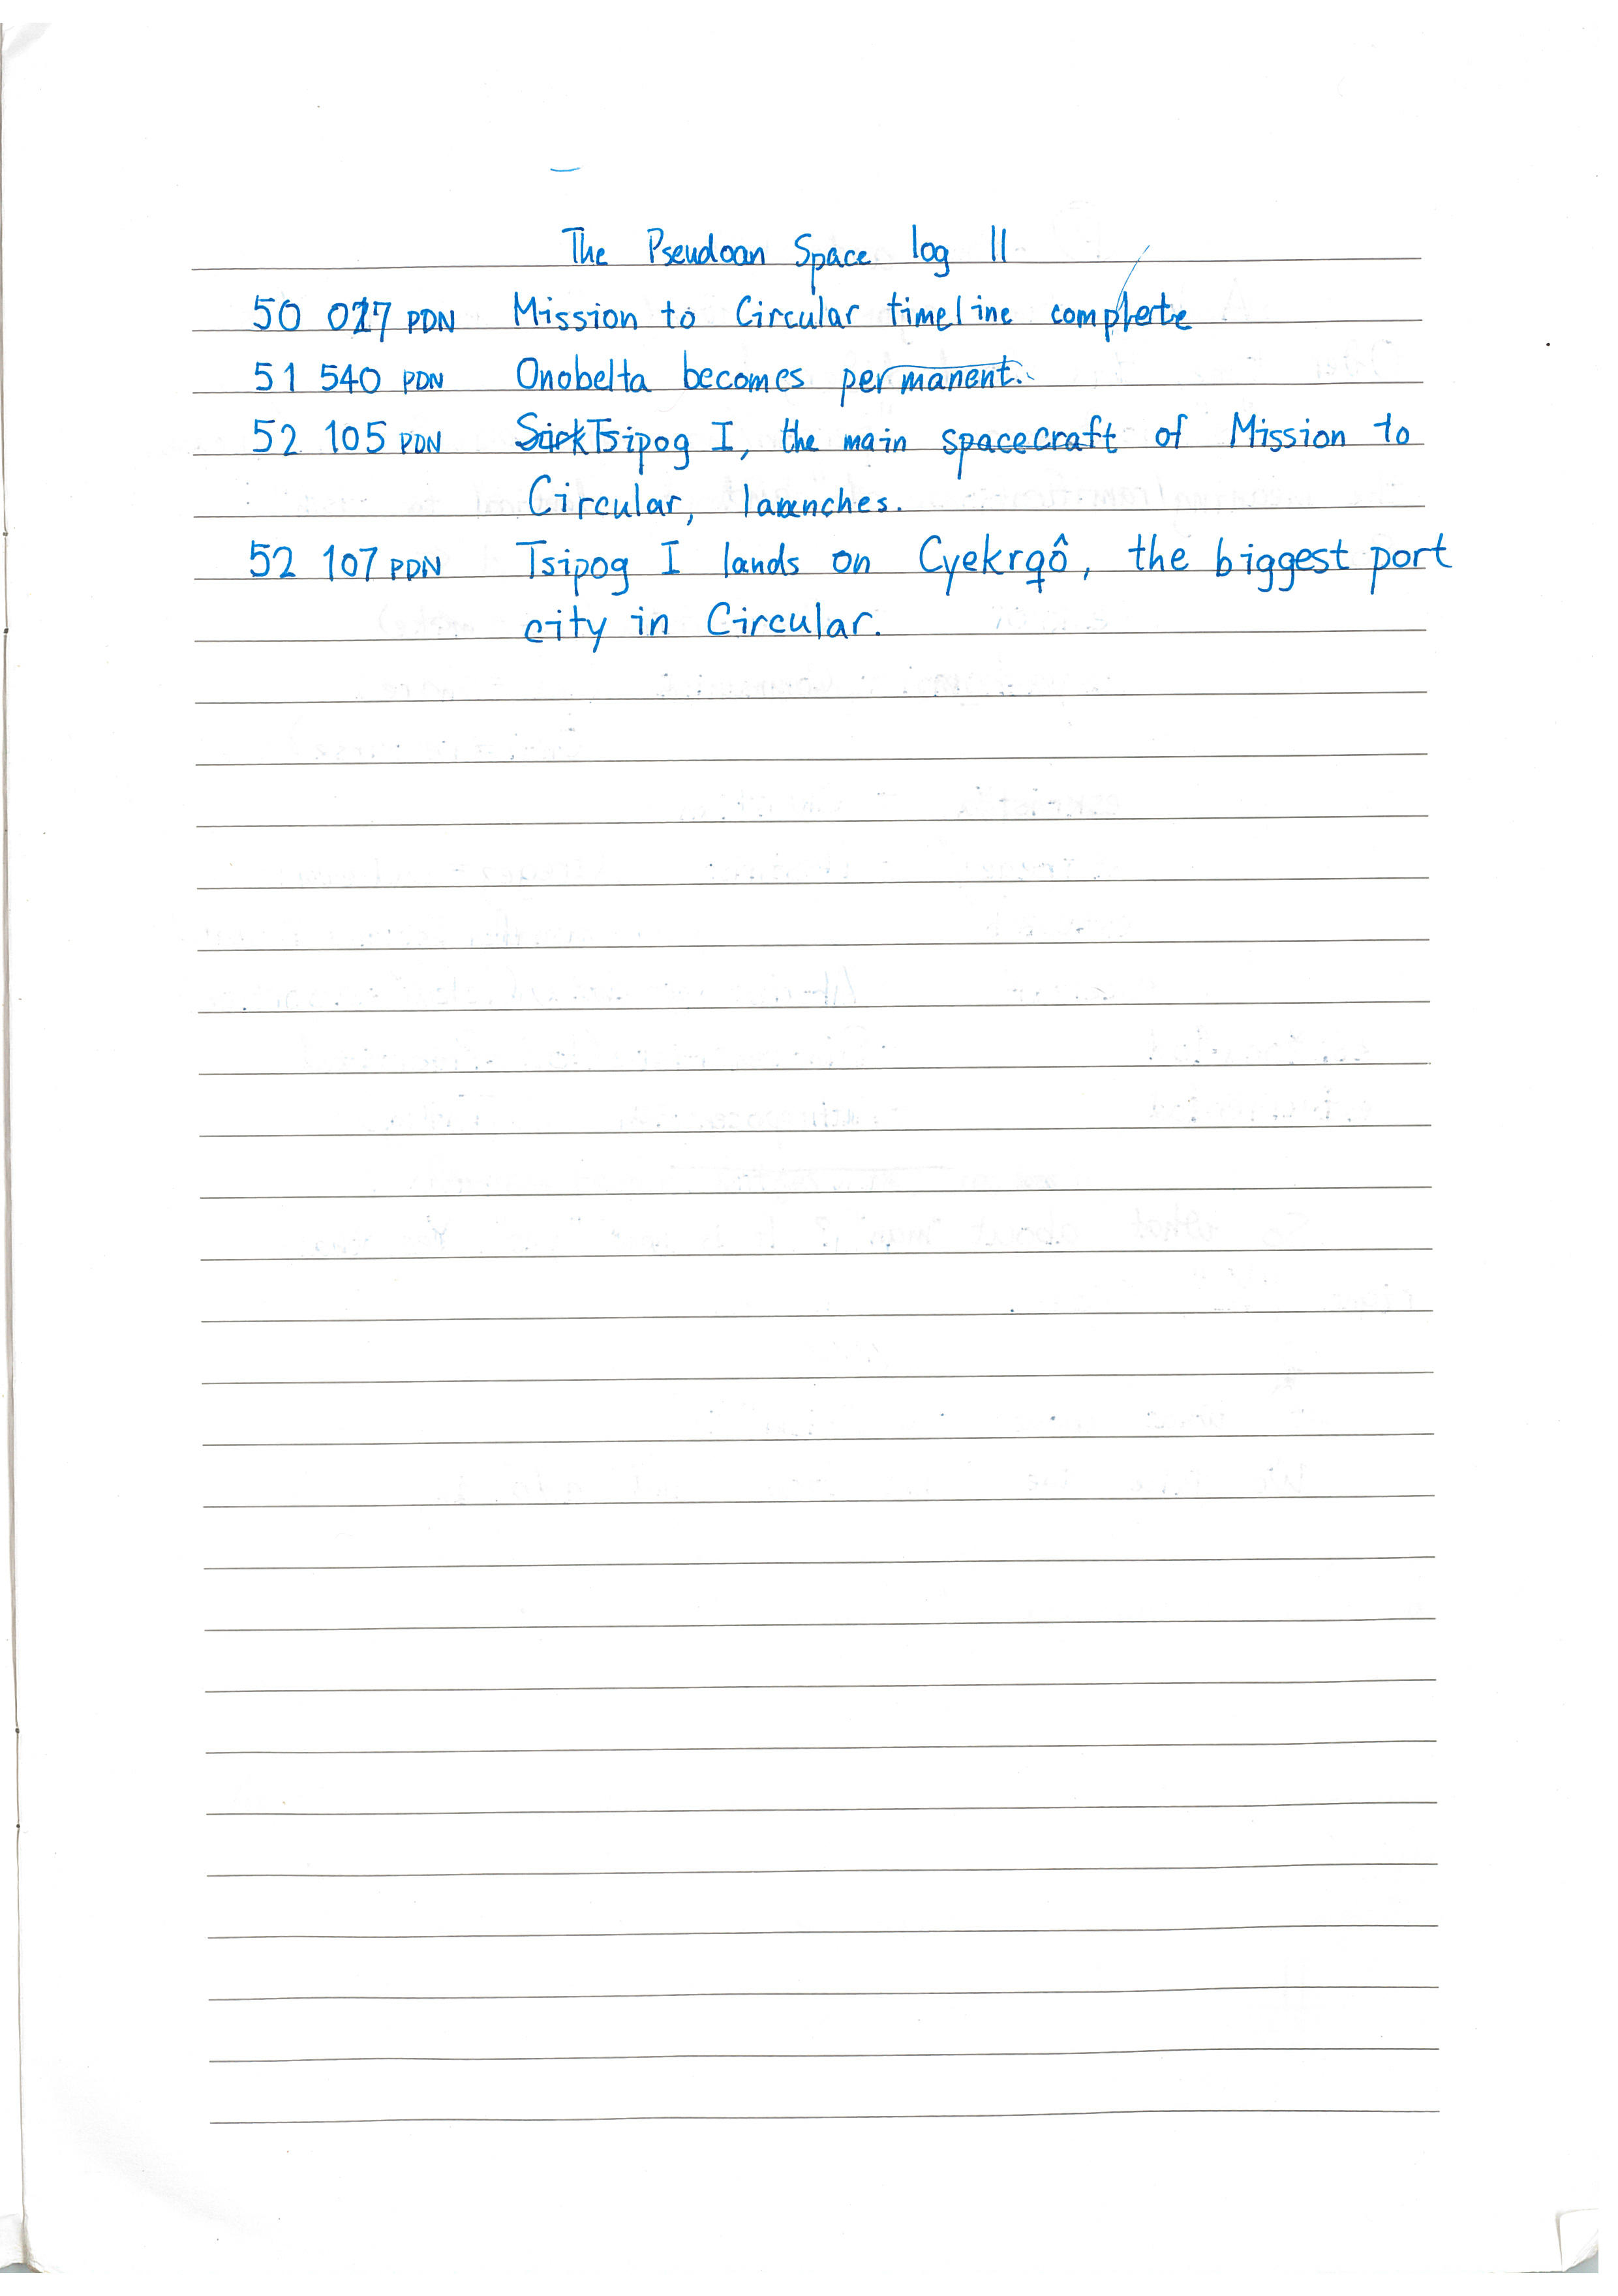 The Pseudoan Space log II
50 027 PDN Mission to Circular timeline complete
51 540 PDN Onobelta becomes permanent.
52 105 PDN Tsipog I, the main spacecraft of Mission to
Circular, launches.
52 107 PDN Tsipog I lands on Cyekrqô, the biggest port
city in Circular.